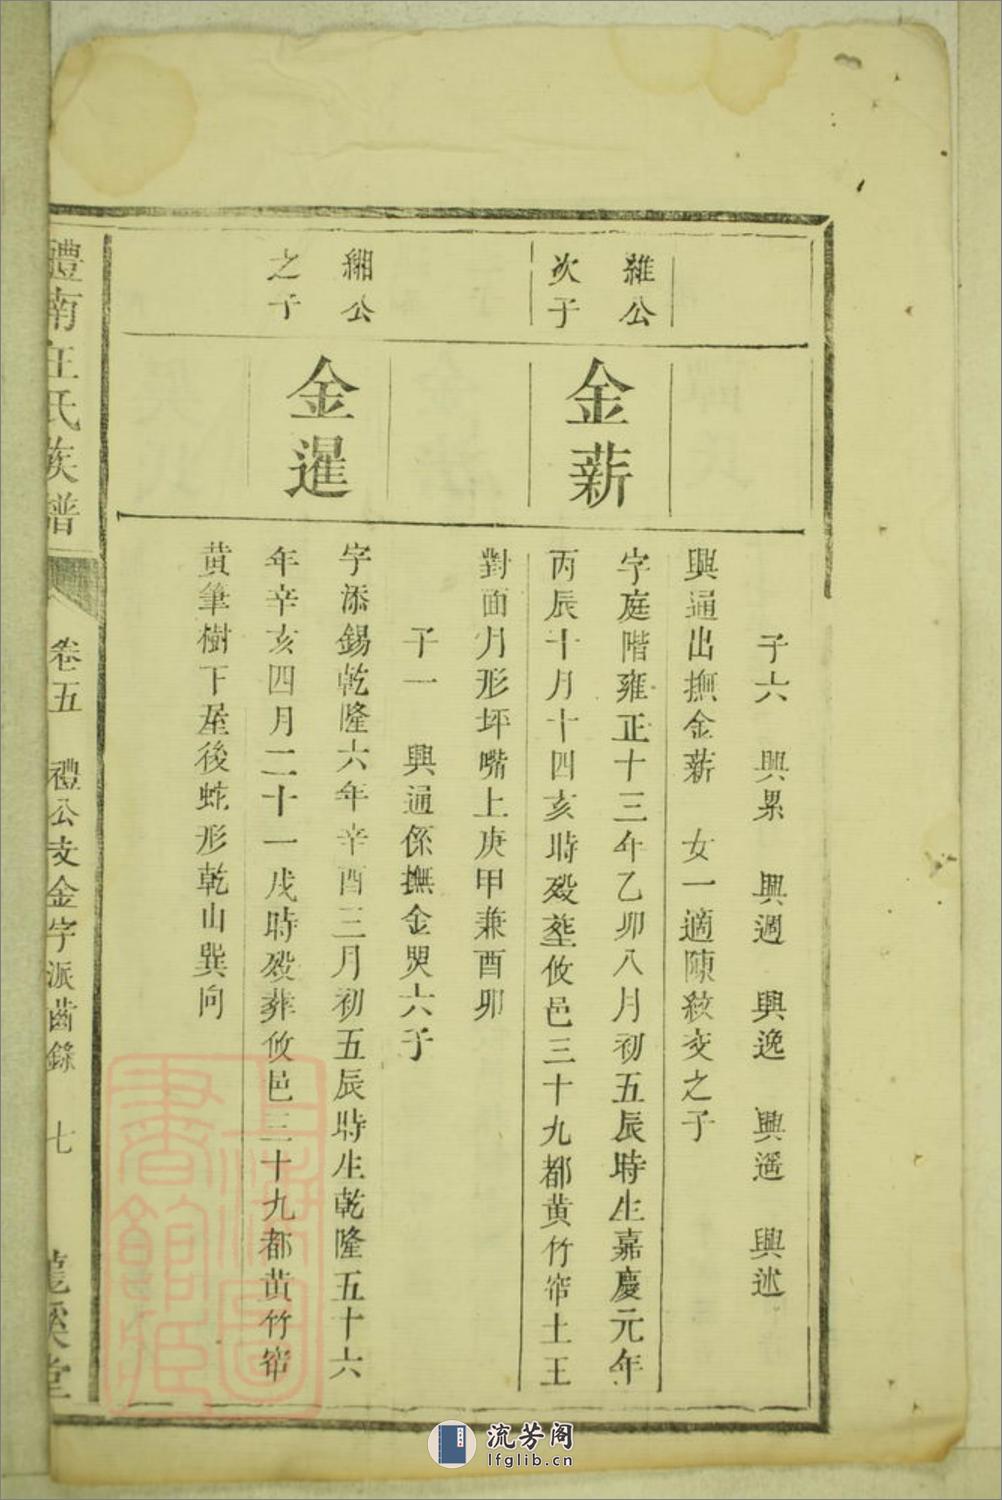 子六 興累 興週 興逸 興遥 興述
興通出撫金薪 女一適陳紋交之子
維公
次子
金薪
字庭階雍正十三年乙卯八月初五辰時生嘉慶元年
丙辰十月十四亥時殁塟攸邑三十九都黄竹帘土王
對面月形坪嘴上庚甲兼酉卯
子一 興通係撫金煚六子
緗公
之子
金暹
字添錫乾隆六年辛酉三月初五辰時生乾隆五十六
年辛亥四月二十一戌時殁葬攸邑三十九都黄竹帘
黄筆樹下屋後蛇形乾山巽向
醴南汪氏族譜 卷五 禮公支金字派齒錄 七
上海圖書館藏
流芳阁
lfglib.cn